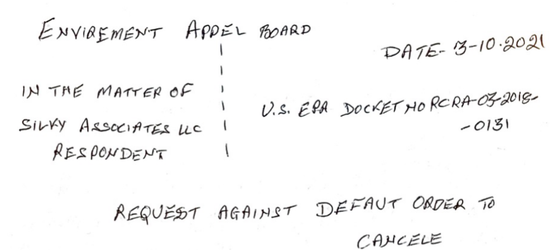 ENVIREMENT APPEL BOARD
DATE- 3-10.2021
IN THE MATTER OF
SILKY ASSOCIATES LLC
RESPONDENT
U.S. EPA DOCKET NO RCRA-03-2018-
-0131
REQUEST AGAINST DEFAUT ORDER TO
CANCELE